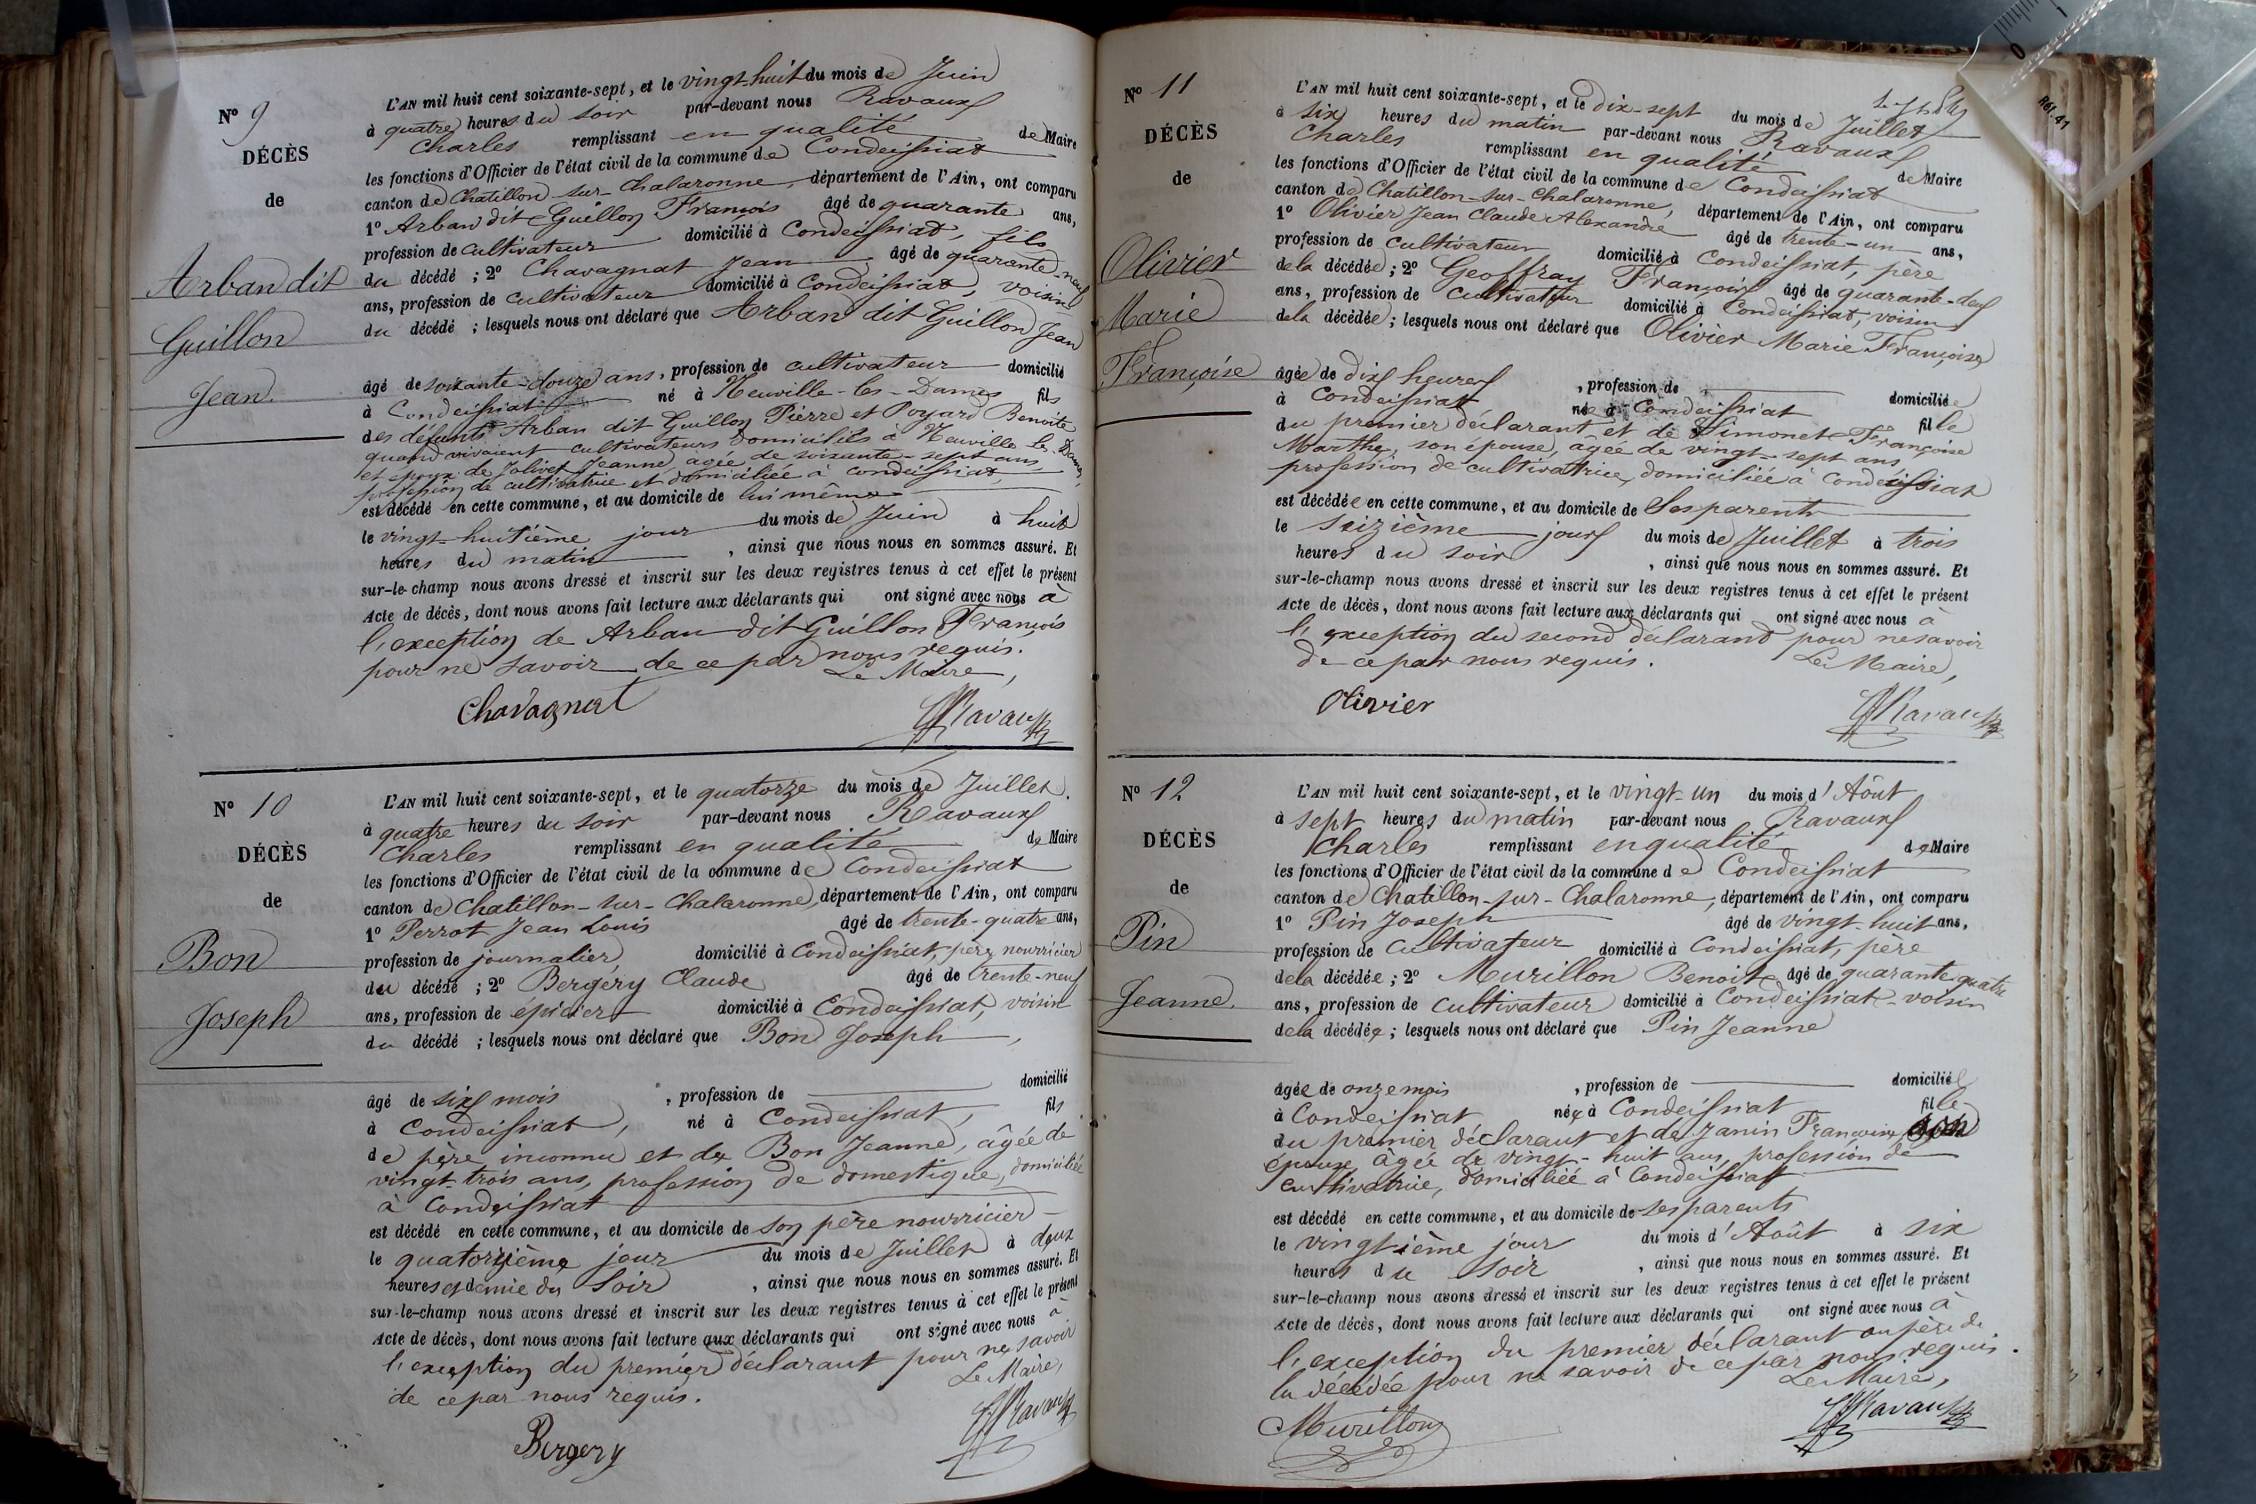 N° 9
DÉCÈS
de
Arban dit
Guillon
Jean.
L'AN mil huit cent soixante-sept, et le vingt-huit du mois de Juin
à quatre heures du soir par-devant nous Ravaux
Charles remplissant en qualité de Maire
les fonctions d'Officier de l'état civil de la commune de Condeissiat
canton de Chatillon-sur-Chalaronne, département de l'Ain, ont comparu
1° Arban dit Guillon François âgé de quarante ans,
profession de cultivateur domicilié à Condeissiat, fils
du décédé ; 2° Chavagnat Jean âgé de quarante-neuf
ans, profession de cultivateur domicilié à Condeissiat, voisin
du décédé ; lesquels nous ont déclaré que Arban dit Guillon Jean
âgé de soixante-douze ans, profession de cultivateur domicilié
à Condeissiat né à Neuville-les-Dames fils
des défunts Arban dit Guillon Pierre et Poyard Benoite
quand vivaient cultivateurs domiciliés à Neuville-les-Dames,
et époux de Jolivet Jeanne, agée de soixante-sept ans,
profession de cultivatrice et domiciliée à Condeissiat,
est décédé en cette commune, et au domicile de lui même
le vingt-huitième jour du mois de Juin à huit
heures du matin , ainsi que nous nous en sommes assuré. Et
sur-le-champ nous avons dressé et inscrit sur les deux registres tenus à cet effet le présent
Acte de décès, dont nous avons fait lecture aux déclarants qui ont signé avec nous à
l'exception de Arban dit Guillon François
pour ne savoir de ce par nous requis.
Le Maire,
Chavagnat Ravaux
N° 10
DÉCÈS
de
Bon
Joseph
L'AN mil huit cent soixante-sept, et le quatorze du mois de Juillet.
à quatre heures du soir par-devant nous Ravaux
Charles remplissant en qualité de Maire
les fonctions d'Officier de l'état civil de la commune de Condeissiat
canton de Chatillon-sur-Chalaronne, département de l'Ain, ont comparu
1° Perrot Jean Louis âgé de trente-quatre ans,
profession de journalier domicilié à Condeissiat, père nourricier
du décédé ; 2° Bergéry Claude âgé de trente-neuf
ans, profession de épicier domicilié à Condeissiat, voisin
du décédé ; lesquels nous ont déclaré que Bon Joseph,
âgé de six mois , profession de domicilié
à Condeissiat, né à Condeissiat, fils
de père inconnu et de Bon Jeanne, âgée de
vingt-trois ans, profession de domestique, domiciliée
à Condeissiat
est décédé en cette commune, et au domicile de son père nourricier
le quatorzième jour du mois de Juillet à deux
heures et demie du soir , ainsi que nous nous en sommes assuré. Et
sur-le-champ nous avons dressé et inscrit sur les deux registres tenus à cet effet le présent
Acte de décès, dont nous avons fait lecture aux déclarants qui ont signé avec nous à
l'exception du premier déclarant pour ne savoir
de ce par nous requis. Le Maire,
Bergery Ravaux
N° 11
DÉCÈS
de
Olivier
Marie
Françoise
L'AN mil huit cent soixante-sept, et le dix-sept du mois de Juillet
à six heures du matin par-devant nous Ravaux
Charles remplissant en qualité de Maire
les fonctions d'Officier de l'état civil de la commune de Condeissiat
canton de Chatillon-sur-Chalaronne, département de l'Ain, ont comparu
1° Olivier Jean Claude Alexandre âgé de trente-un ans,
profession de cultivateur domicilié à Condeissiat, père
de la décédée ; 2° Geoffray François âgé de quarante-deux
ans, profession de cultivateur domicilié à Condeissiat, voisin
de la décédée ; lesquels nous ont déclaré que Olivier Marie Françoise
âgée de dix heures , profession de domiciliée
à Condeissiat née à Condeissiat fille
du premier déclarant et de Simonet Françoise
Marthe, son épouse, âgée de vingt-sept ans,
profession de cultivatrice, domiciliée à Condeissiat
est décédée en cette commune, et au domicile de Ses parents
le seizième jour du mois de Juillet à trois
heures du soir , ainsi que nous nous en sommes assuré. Et
sur-le-champ nous avons dressé et inscrit sur les deux registres tenus à cet effet le présent
Acte de décès, dont nous avons fait lecture aux déclarants qui ont signé avec nous à
l'exception du second déclarant pour ne savoir
de ce par nous requis. Le Maire,
Olivier Ravaux
N° 12
DÉCÈS
de
Pin
Jeanne.
L'AN mil huit cent soixante-sept, et le vingt-un du mois d'Août
à sept heures du matin par-devant nous Ravaux
Charles remplissant en qualité de Maire
les fonctions d'Officier de l'état civil de la commune de Condeissiat
canton de Chatillon-sur-Chalaronne, département de l'Ain, ont comparu
1° Pin Joseph âgé de vingt-huit ans,
profession de cultivateur domicilié à Condeissiat, père
de la décédée ; 2° Murillon Benoit âgé de quarante quatre
ans, profession de cultivateur domicilié à Condeissiat voisin
de la décédée ; lesquels nous ont déclaré que Pin Jeanne
âgée de onze mois , profession de domiciliée
à Condeissiat née à Condeissiat fille
du premier déclarant et de Janin Françoise, son
épouse, âgée de vingt-huit ans, profession de
cultivatrice, domiciliée à Condeissiat
est décédé en cette commune, et au domicile de ses parents
le vingtième jour du mois d'Août à six
heures du soir , ainsi que nous nous en sommes assuré. Et
sur-le-champ nous avons dressé et inscrit sur les deux registres tenus à cet effet le présent
Acte de décès, dont nous avons fait lecture aux déclarants qui ont signé avec nous à
l'exception du premier déclarant ou père de
la décédée pour ne savoir de ce par nous requis.
Le Maire,
Murillon Ravaux
R61.41
0 1